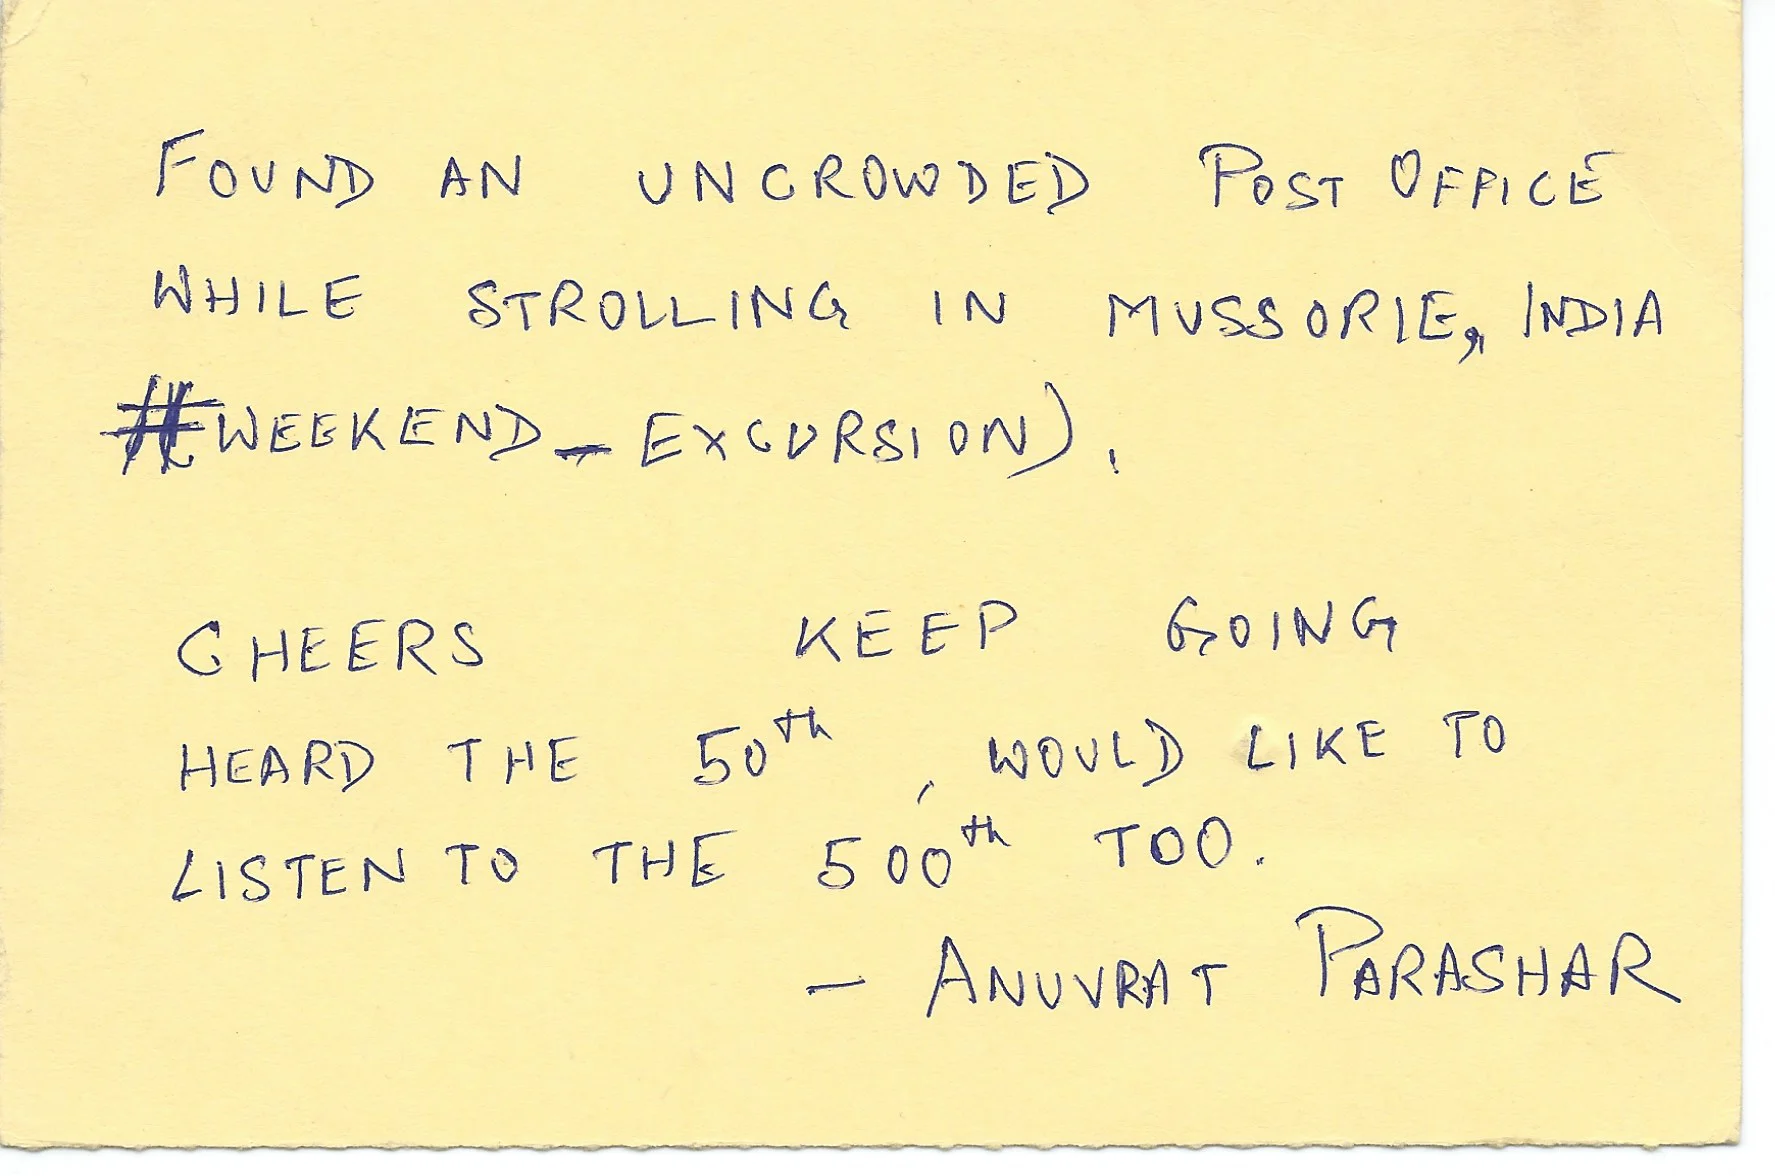 FOUND AN UNCROWDED POST OFFICE
WHILE STROLLING IN MUSSORIE, INDIA
#WEEKEND_EXCURSION).
CHEERS KEEP GOING
HEARD THE 50th, WOULD LIKE TO
LISTEN TO THE 500th TOO.
- ANUVRAT PARASHAR